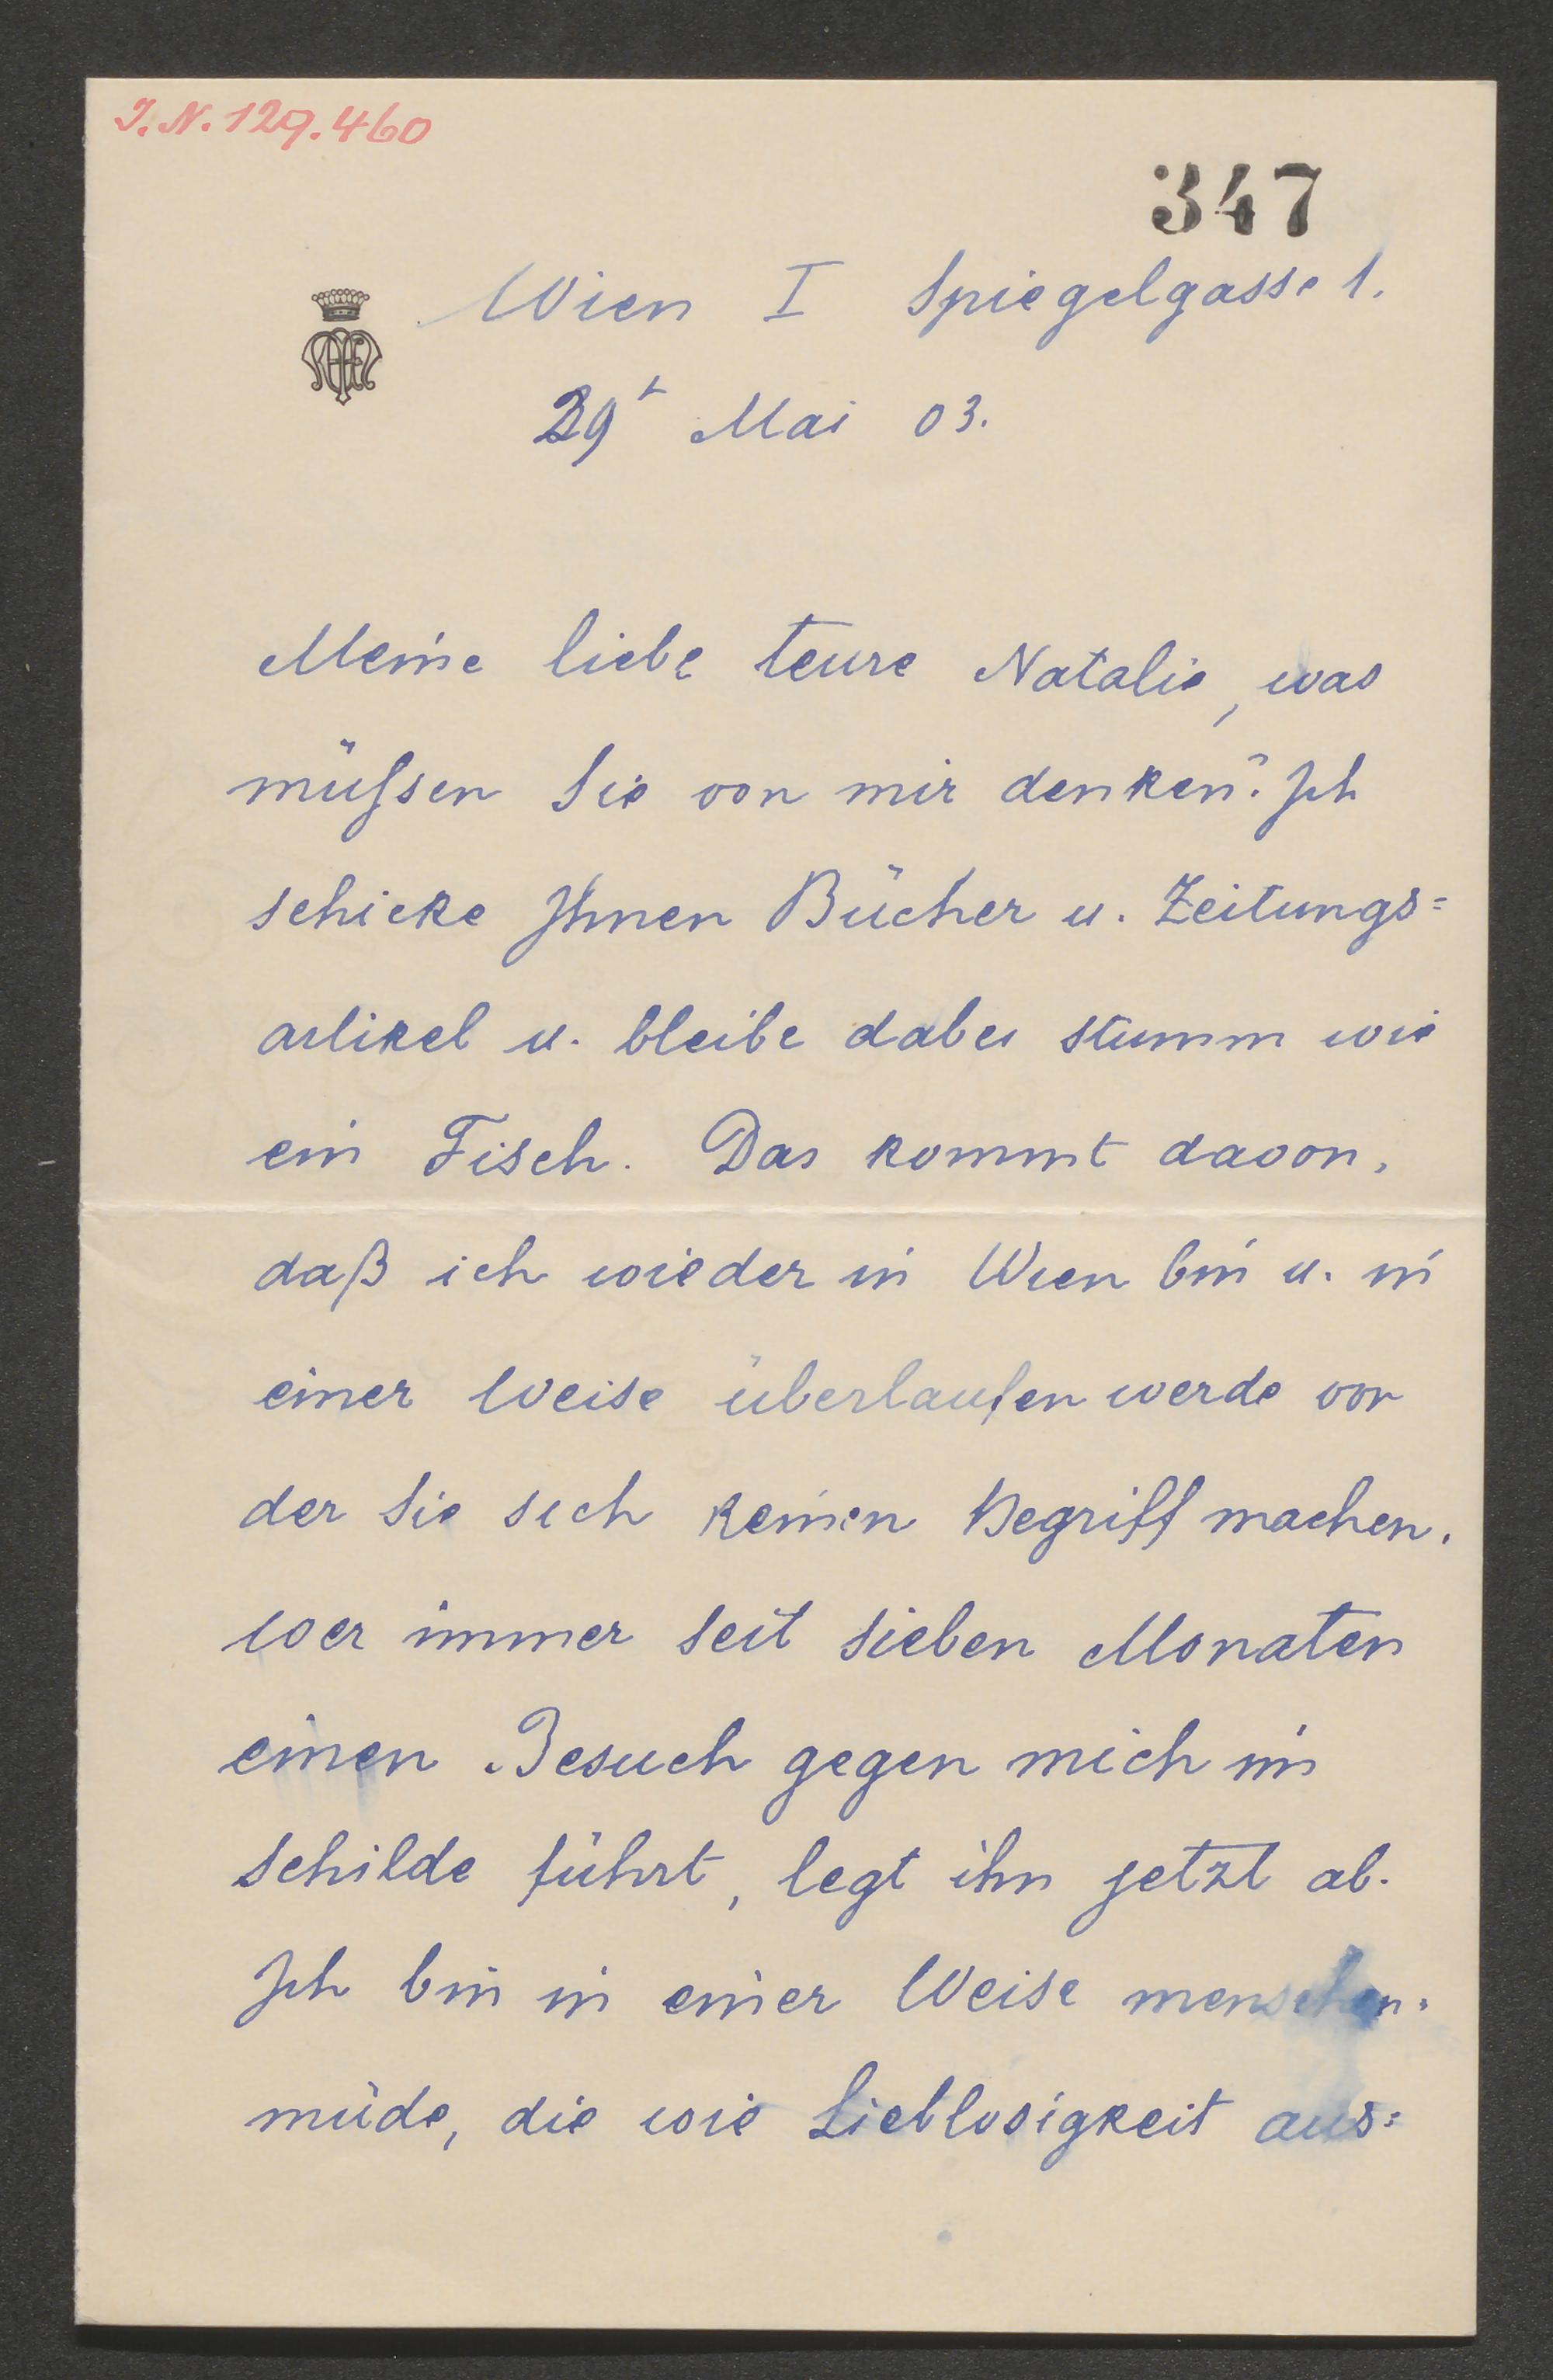 I.N. 129.460
347
Wien I Spiegelgasse 1.
29t Mai 03.
Meine liebe teure Natalie, was
müſsen Sie von mir denken? Ich
schicke Ihnen Bücher u. Zeitungs=
artikel u. bleibe dabei stumm wie
ein Fisch. Das kommt davon,
daß ich wieder in Wien bin u. in
einer Weise überlaufen werde von
der Sie sich keinen Begriff machen.
Wer immer seit sieben Monaten
einen Besuch gegen mich im
Schilde führt, legt ihn jetzt ab.
Ich bin in einer Weise menschen=
müde, die wie Lieblosigkeit aus=